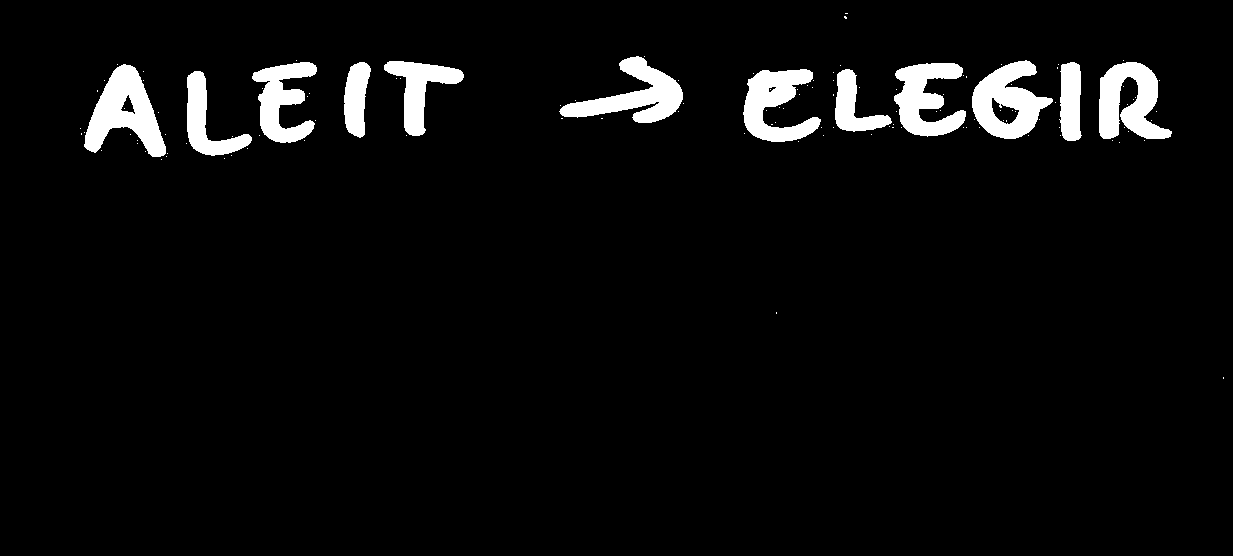 ALEIT → ELEGIR